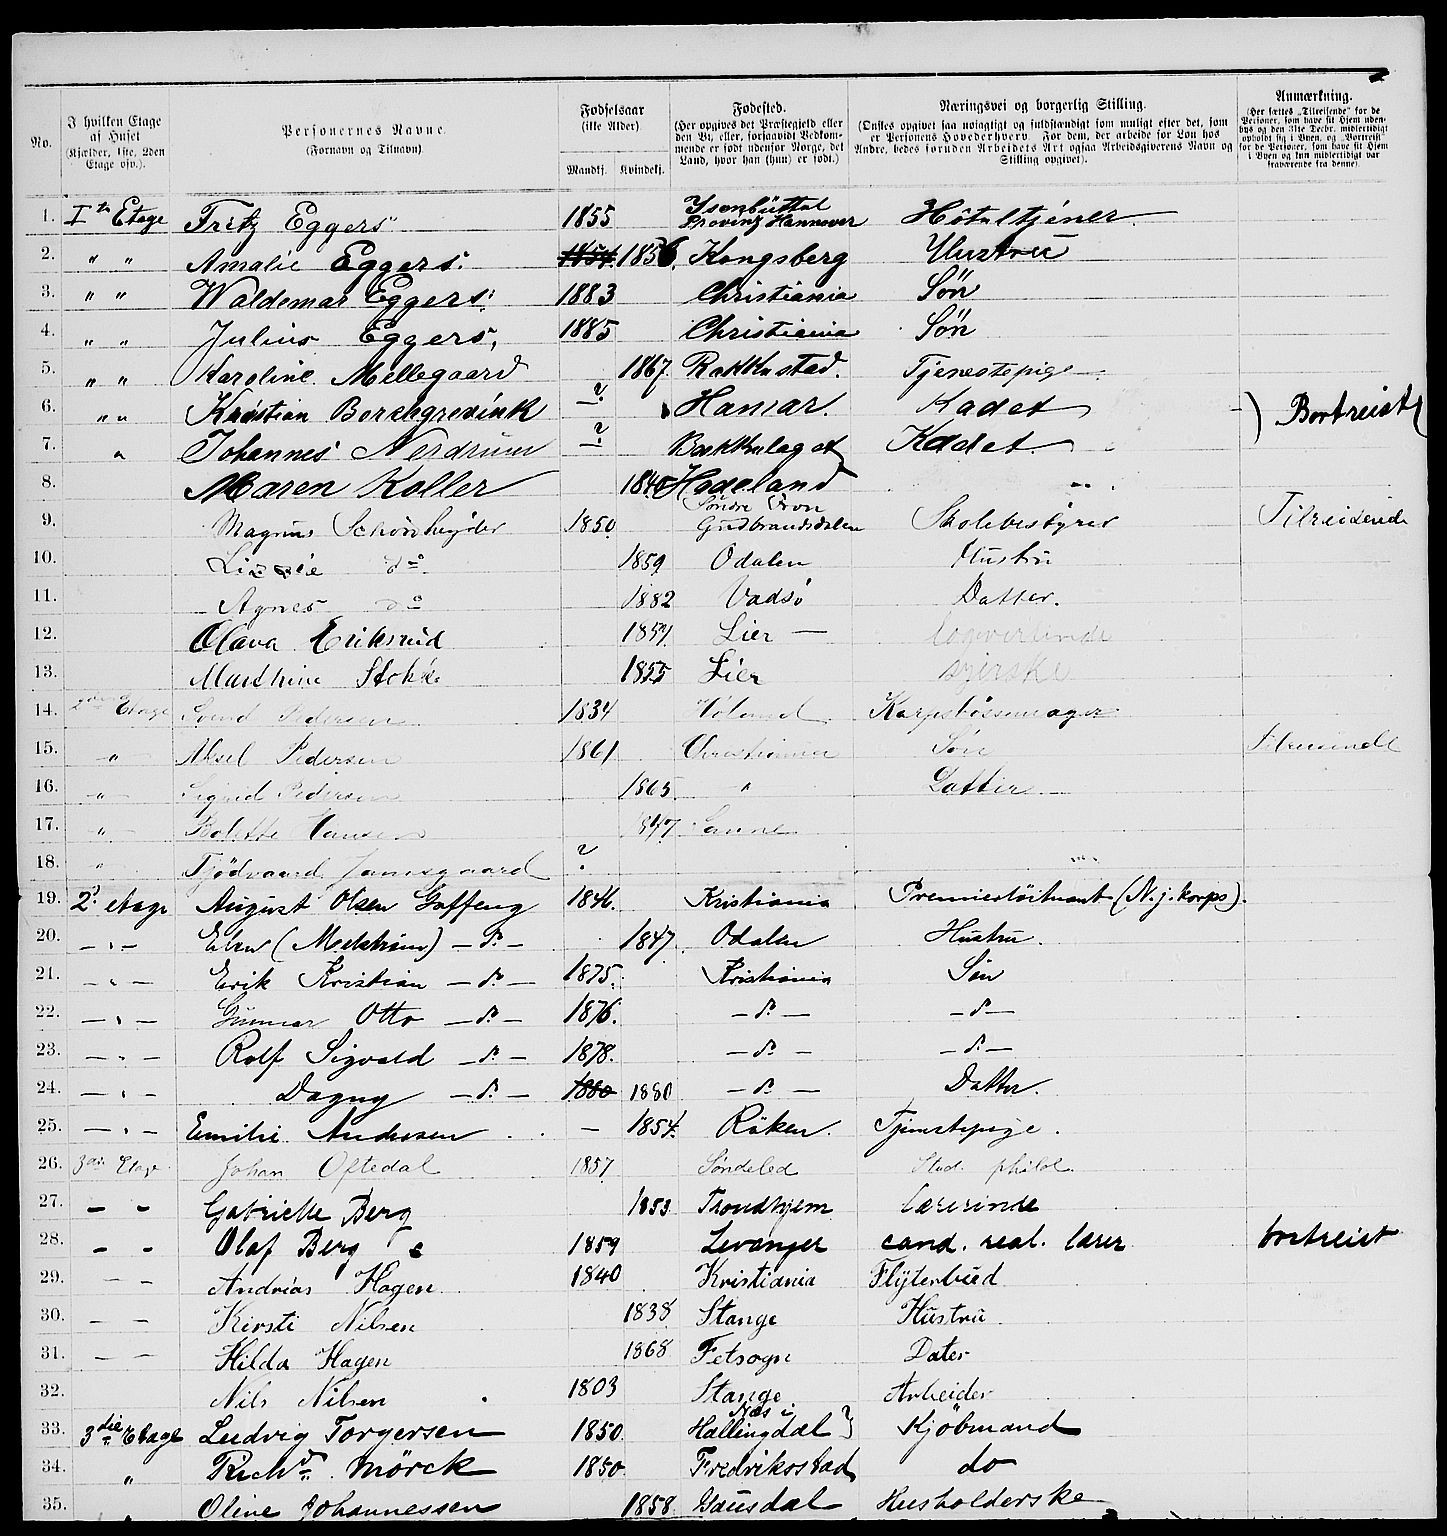 No. | I hvilken Etage af Huset (Kjælder, 1ste, 2den Etage osv.). | Personernes Navne. (Fornavn og Tilnavn) | Fødselsaar (ikke Alder) Mandkj. Kvindekj. | Fødested. (Her opgives det Præstegjeld eller den By, eller, forsaavidt Vedkommende er født udenfor Norge, det Land, hvor han (hun) er født.) | Næringsvei og borgerlig Stilling. (Ønskes opgivet saa nøiagtigt og fuldstændigt som muligt efter det, som er Personens Hovederhverv. For dem, der arbeide for Løn hos Andre, bedes foruden Arbeidets Art ogsaa Arbeidsgiverens Navn og Stilling opgivet). | Anmærkning. (Her sættes „Tilreisende" for de Personer, som have sit Hjem udenbys og den 31te Decbr. midlertidigt opholdt sig i Byen, og „Bortreist" for de Personer, som have sit Hjem i Byen og kun midlertidigt var fraværende fra denne).
1. Ite Etage Fritz Eggers 1855 Isenbüttel Provinz Hannover Hôteltjener
2. " " Amalie Eggers. 1854 1856. Kongsberg Hustru
3. " " Waldemar Eggers. 1883 Christiania Søn
4. " " Julius Eggers, 1885 Christiania Søn
5. " " Karoline Mellegaard 1867 Rakkestad. Tjenestepige
6. " " Kristian Borchgrevink ? Hamar. Kadet } Bortreist
7. " Johannes Nerdrum ? Bækkelaget Kadet.
8. Maren Koller 1840 Hadeland "
9. Magnus Schønheyder 1850 Søndre Fron Gudbrandsdalen Skolebestyrer Tilreisende
10. Lizzie do 1859 Odalen Hustru
11. Agnes do 1882 Vadsø Datter.
12. Olava Eriksrud 1857 Lier — logerende
13. Marthine Stokke 1855 Lier syerske
14. 2den Etage Svend Pedersen 1834 Høland Korpsbøssemager
15. " Aksel Pedersen 1861 Christiania Søn Tilreisende
16. " Sigrid Pedersen 1865 " Datter
17. " Bolette Hansen 1847
18. " ? "
19. 2. etage August Olsen Gaffeng 1846. Kristiania Premierløitnant (N. j. korps).
20. — " — (Mechstrøm) — do — 1847 Odalen Hustru.
21. — " — Erik Kristian — do — 1875. Kristiania Søn
22. — " — Gunnar Otto — do — 1876. — do — — do —
23. — " — Rolf Sigvald — do — 1878. — do — — do —
24. — " — Dagny — do — 1880 1880 — do — Datter.
25. — " — Emilie Andersen — 1854. Røken. Tjenestepige.
26. 3die Etage Johan Oftedal 1857 Søndeled Stud. philol.
27. — — Gabrielle Berg 1853 Trondhjem lærerinde
28. — — Olaf Berg 1859 Levanger cand. real. lærer bortreist
29. — — Andrias Hagen 1840 Kristiania Flyterbud
30. — — Kirsti Nilsen 1838 Stange Hustru
31. — — Hilda Hagen 1868 Fetsogn Dater
32. Nils Nilsen 1803 Stange Arbeider
33. 3die Etage Ludvig Torgersen 1850 Næs i Hallingdal } Kjøbmand
34. " Richd. Mörck 1850 Fredriksstad do
35. " Oline Johannessen 1858 Gausdal Husholderske